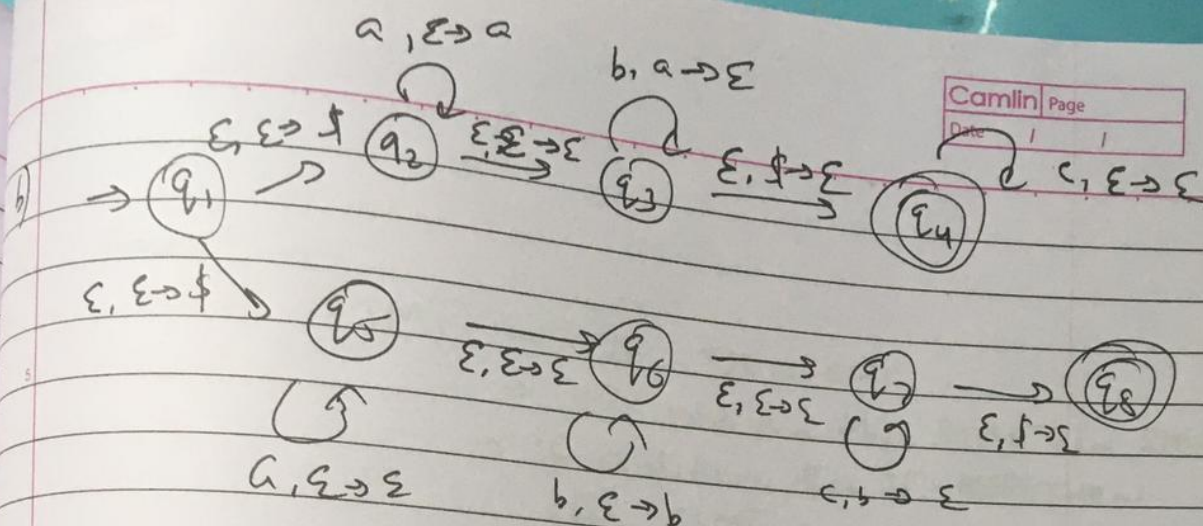 a, ε → a
b, a → ε
Camlin Page
Date / /
ε, ε → $
q2
ε, ε → ε
q3
ε, $ → ε
q4
c, ε → ε
b)
q1
ε, ε → $
q5
ε, ε → ε
q6
ε, ε → ε
q7
ε, $ → ε
q8
5
a, ε → ε
b, ε → b
c, b → ε